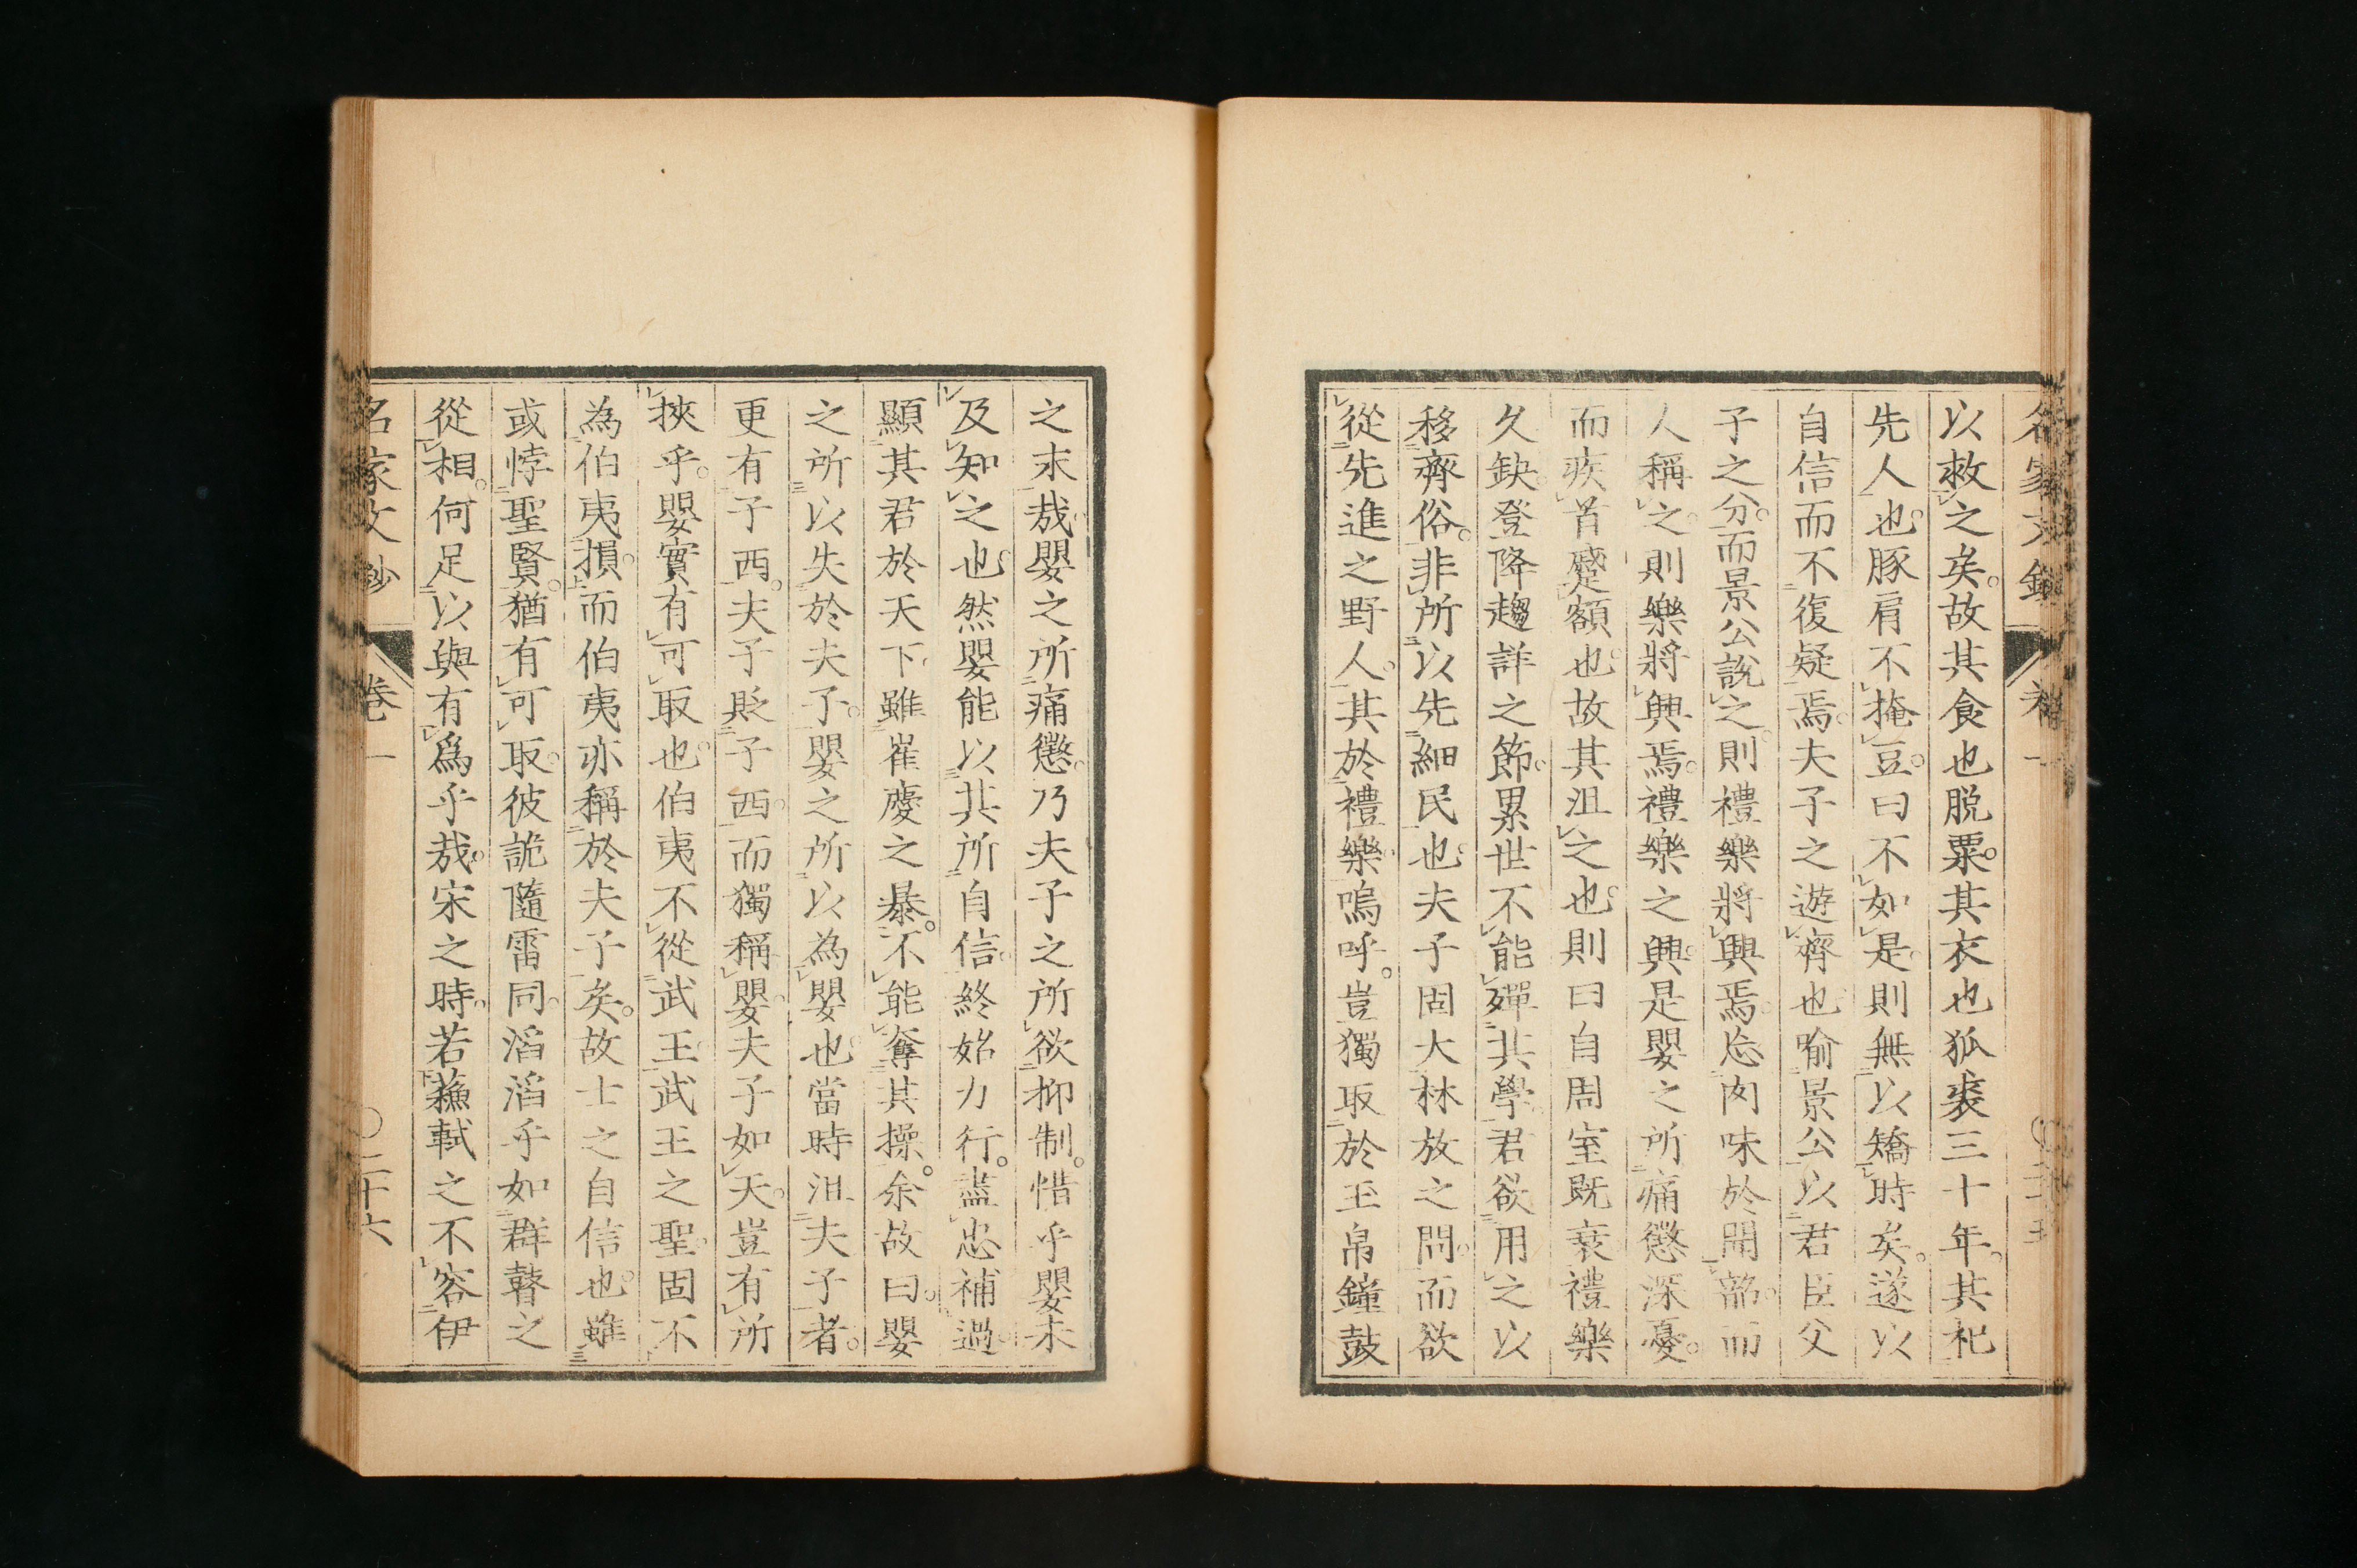 以救之矣。故其食也脱粟。其衣也狐裘三十年。其祀
先人也。豚肩不掩豆。曰不如是。則無以矯時矣。遂以
自信而不復疑焉。夫子之遊齊也。喻景公以君臣父
子之分。而景公說之。則禮樂將興焉。忘肉味於聞韶。而
人稱之。則樂將興焉。禮樂之興。是嬰之所痛懲深憂。
而疾首蹙額也。故其沮之也。則曰自周室既衰禮樂
久缺。登降趨詳之節。累世不能殫其學。君欲用之以
移齊俗。非所以先細民也。夫子固大林放之問。而欲
從先進之野人。其於禮樂。嗚呼。豈獨取於玉帛鐘鼓
之末哉。嬰之所痛懲。乃夫子之所欲抑制。惜乎嬰未
及知之也。然嬰能以其所自信。終始力行。盡忠補過。
顯其君於天下。雖崔慶之暴。不能奪其操。余故曰。嬰
之所以失於夫子。嬰之所以為嬰也。當時沮夫子者。
更有子西。夫子貶子西。而獨稱嬰。夫子如天。豈有所
挾乎。嬰實有可取也。伯夷不從武王。武王之聖。固不
為伯夷損。而伯夷亦稱於夫子矣。故士之自信也。雖
或悖聖賢。猶有可取。彼詭隨雷同。滔滔乎如群瞽之
從相。何足以與有爲乎哉。宋之時。若蘓軾之不容伊
名家文鈔 卷一 〇二十六